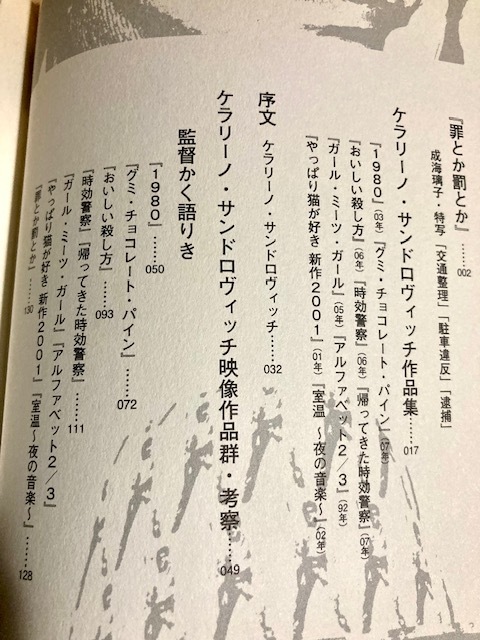 『罪とか罰とか』……002
成海璃子・特写「交通整理」「駐車違反」「逮捕」
ケラリーノ・サンドロヴィッチ作品集……017
『1980』(03年)『グミ・チョコレート・パイン』(07年)
『おいしい殺し方』(06年)『時効警察』(06年)『帰ってきた時効警察』(07年)
『ガール・ミーツ・ガール』(05年)『アルファベット2/3』(92年)
『やっぱり猫が好き 新作2001』(01年)『室温 〜夜の音楽〜』(02年)
序文 ケラリーノ・サンドロヴィッチ……032
ケラリーノ・サンドロヴィッチ映像作品群・考察……049
監督かく語りき
『1980』……050
『グミ・チョコレート・パイン』……072
『おいしい殺し方』……093
『時効警察』『帰ってきた時効警察』……111
『ガール・ミーツ・ガール』『アルファベット2/3』
『やっぱり猫が好き 新作2001』『室温〜夜の音楽〜』……128
『罪とか罰とか』……130